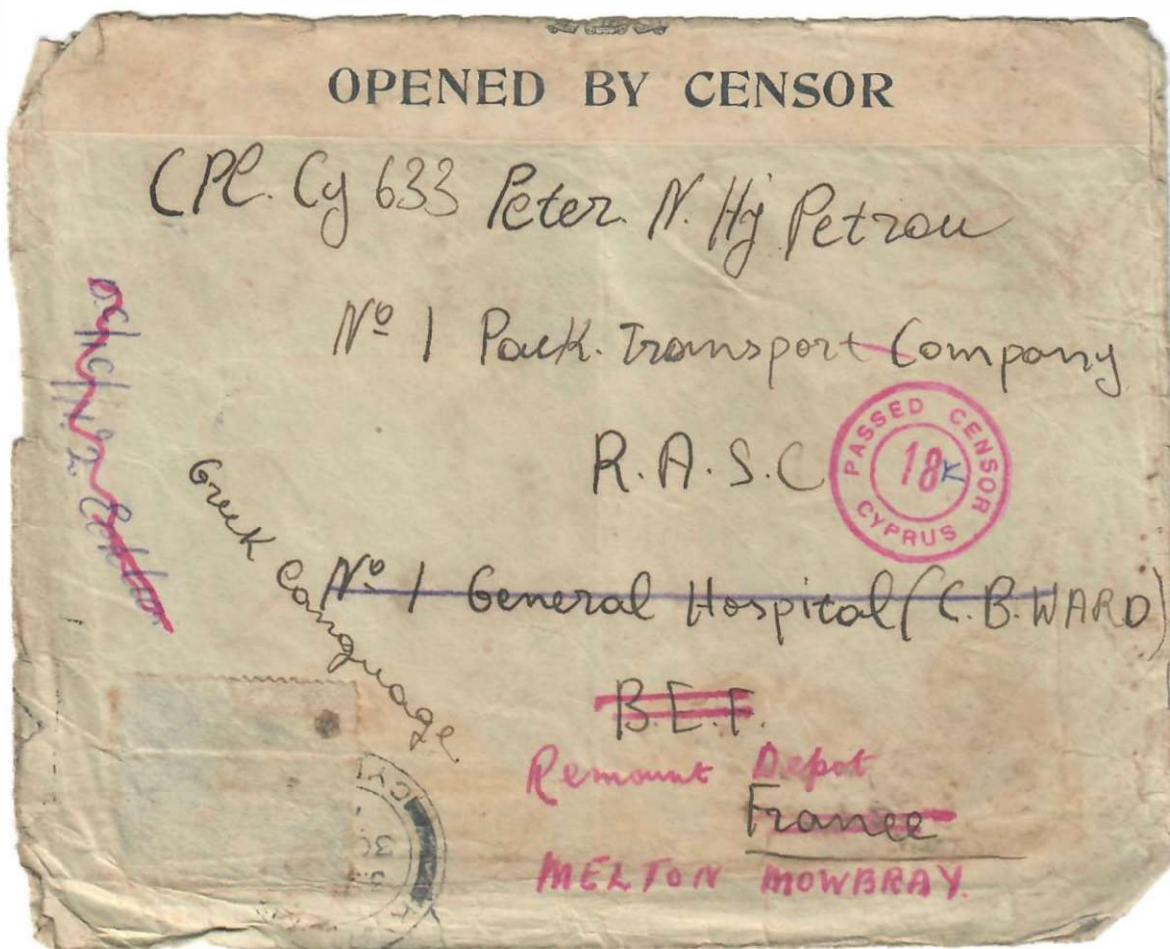 OPENED BY CENSOR
CPl. Cy 633 Peter. N. Hj Petrou
Nº 1 Pack. Transport Company
R.A.S.C
PASSED CENSOR
18
CYPRUS
Greek Language
Nº 1 General Hospital (C.B. WARD)
B.E.F.
Remount Depot
France
MELTON MOWBRAY.